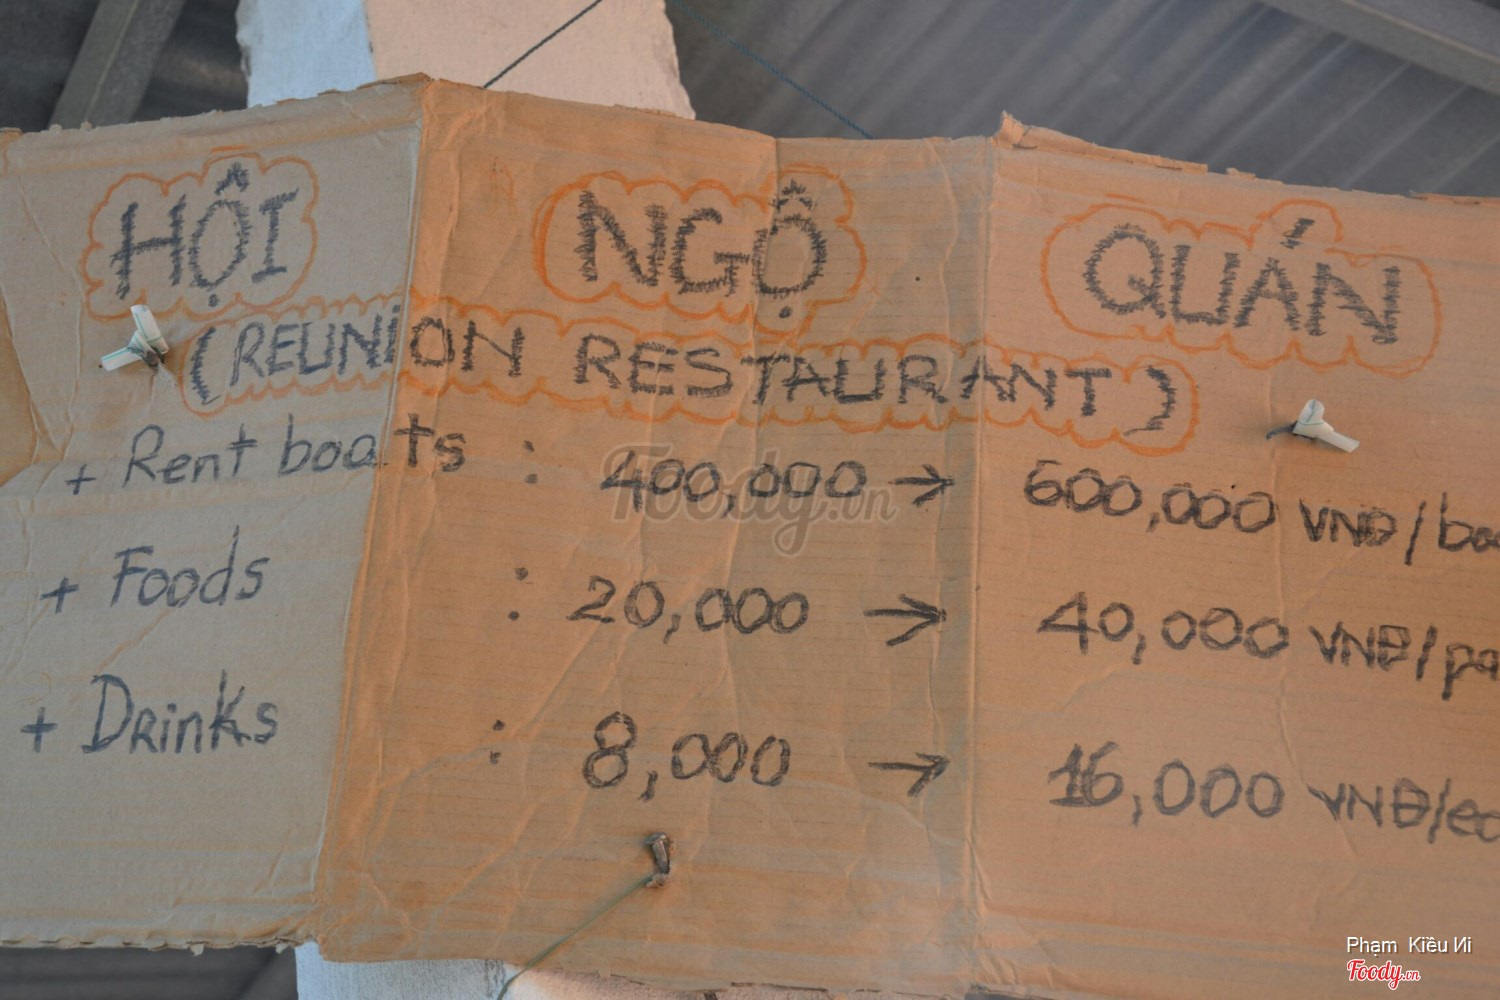 HỘI NGỘ QUÁN
(REUNiON RESTAURANT)
+ Rent boats : 400,000 → 600,000 VNĐ/boa
+ Foods : 20,000 → 40,000 VNĐ/pa
+ DRinks : 8,000 → 16,000 VNĐ/ea
Foody.vn
Phạm Kiều Иi
Foody.vn